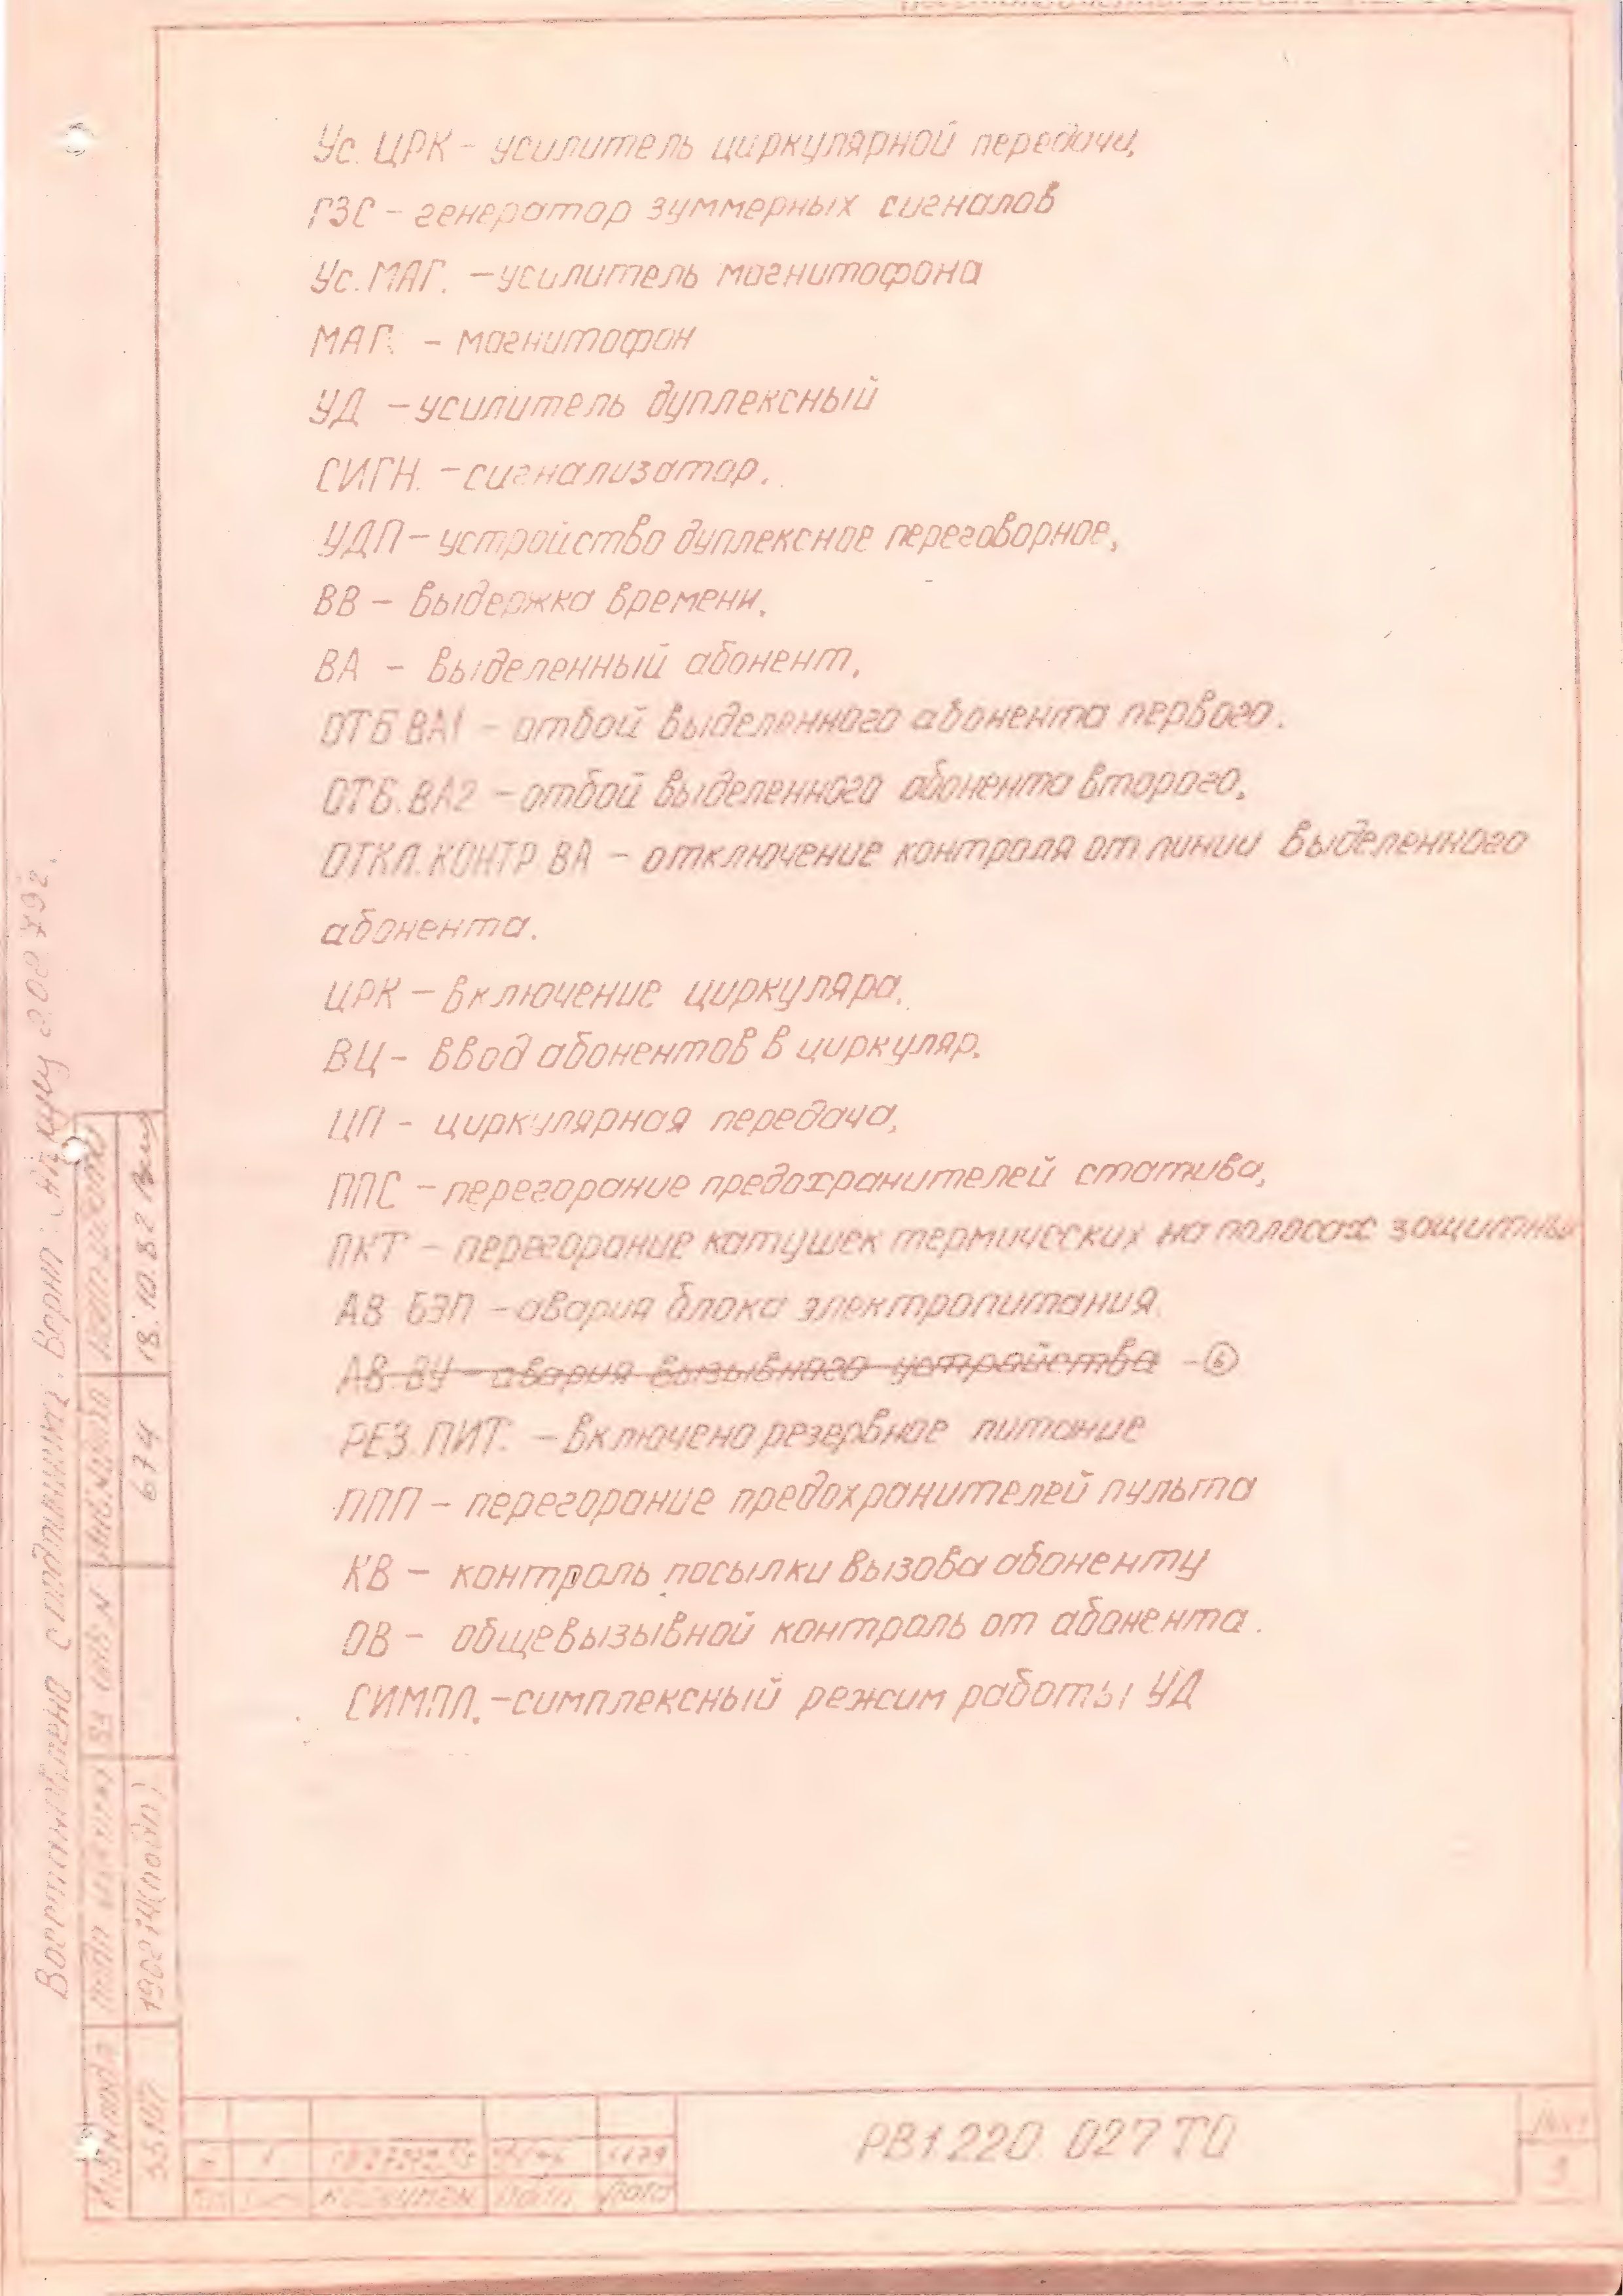 Ус. ЦРК - усилитель циркулярной передачи,
ГЗС - генератор зуммерных сигналов
Ус. МАГ. - усилитель магнитофона
МАГ. - магнитофон
УД - усилитель дуплексный
СИГН. - сигнализатор.
УДП - устройство дуплексное переговорное,
ВВ - выдержка времени,
ВА - выделенный абонент,
ОТБ ВА1 - отбой выделенного абонента первого.
ОТБ. ВА2 - отбой выделенного абонента второго,
ОТКЛ. КОНТР. ВА - отключение контроля от линии выделенного
абонента.
ЦРК - включение циркуляра,
ВЦ - ввод абонентов в циркуляр.
ЦП - циркулярная передача,
ППС - перегорание предохранителей статива,
ПКТ - перегорание катушек термических на полосах защитны
АВ БЭП - авария блока электропитания
АВ. ВУ - авария вызывного устройства - 6
РЕЗ. ПИТ. - включено резервное питание
ППП - перегорание предохранителей пульта
КВ - контроль посылки вызова абоненту
ОВ - общевызывной контроль от абонента.
СИМПЛ. - симплексный режим работы УД
Восстановлено с подлинника. Верно: 2.08.79г.
18.10.82
674
РВ1 220 027 ТО
Дата